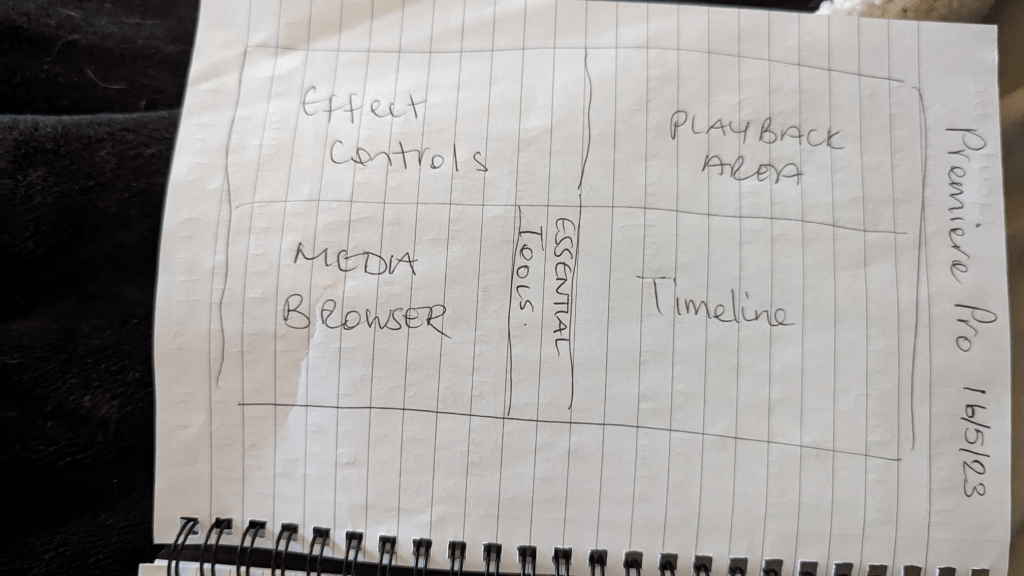 Premiere Pro 16/5/23
Effect
Controls
PLAYBACK
AREA
MEDIA
BROWSER
ESSENTIAL
TOOLS.
Timeline